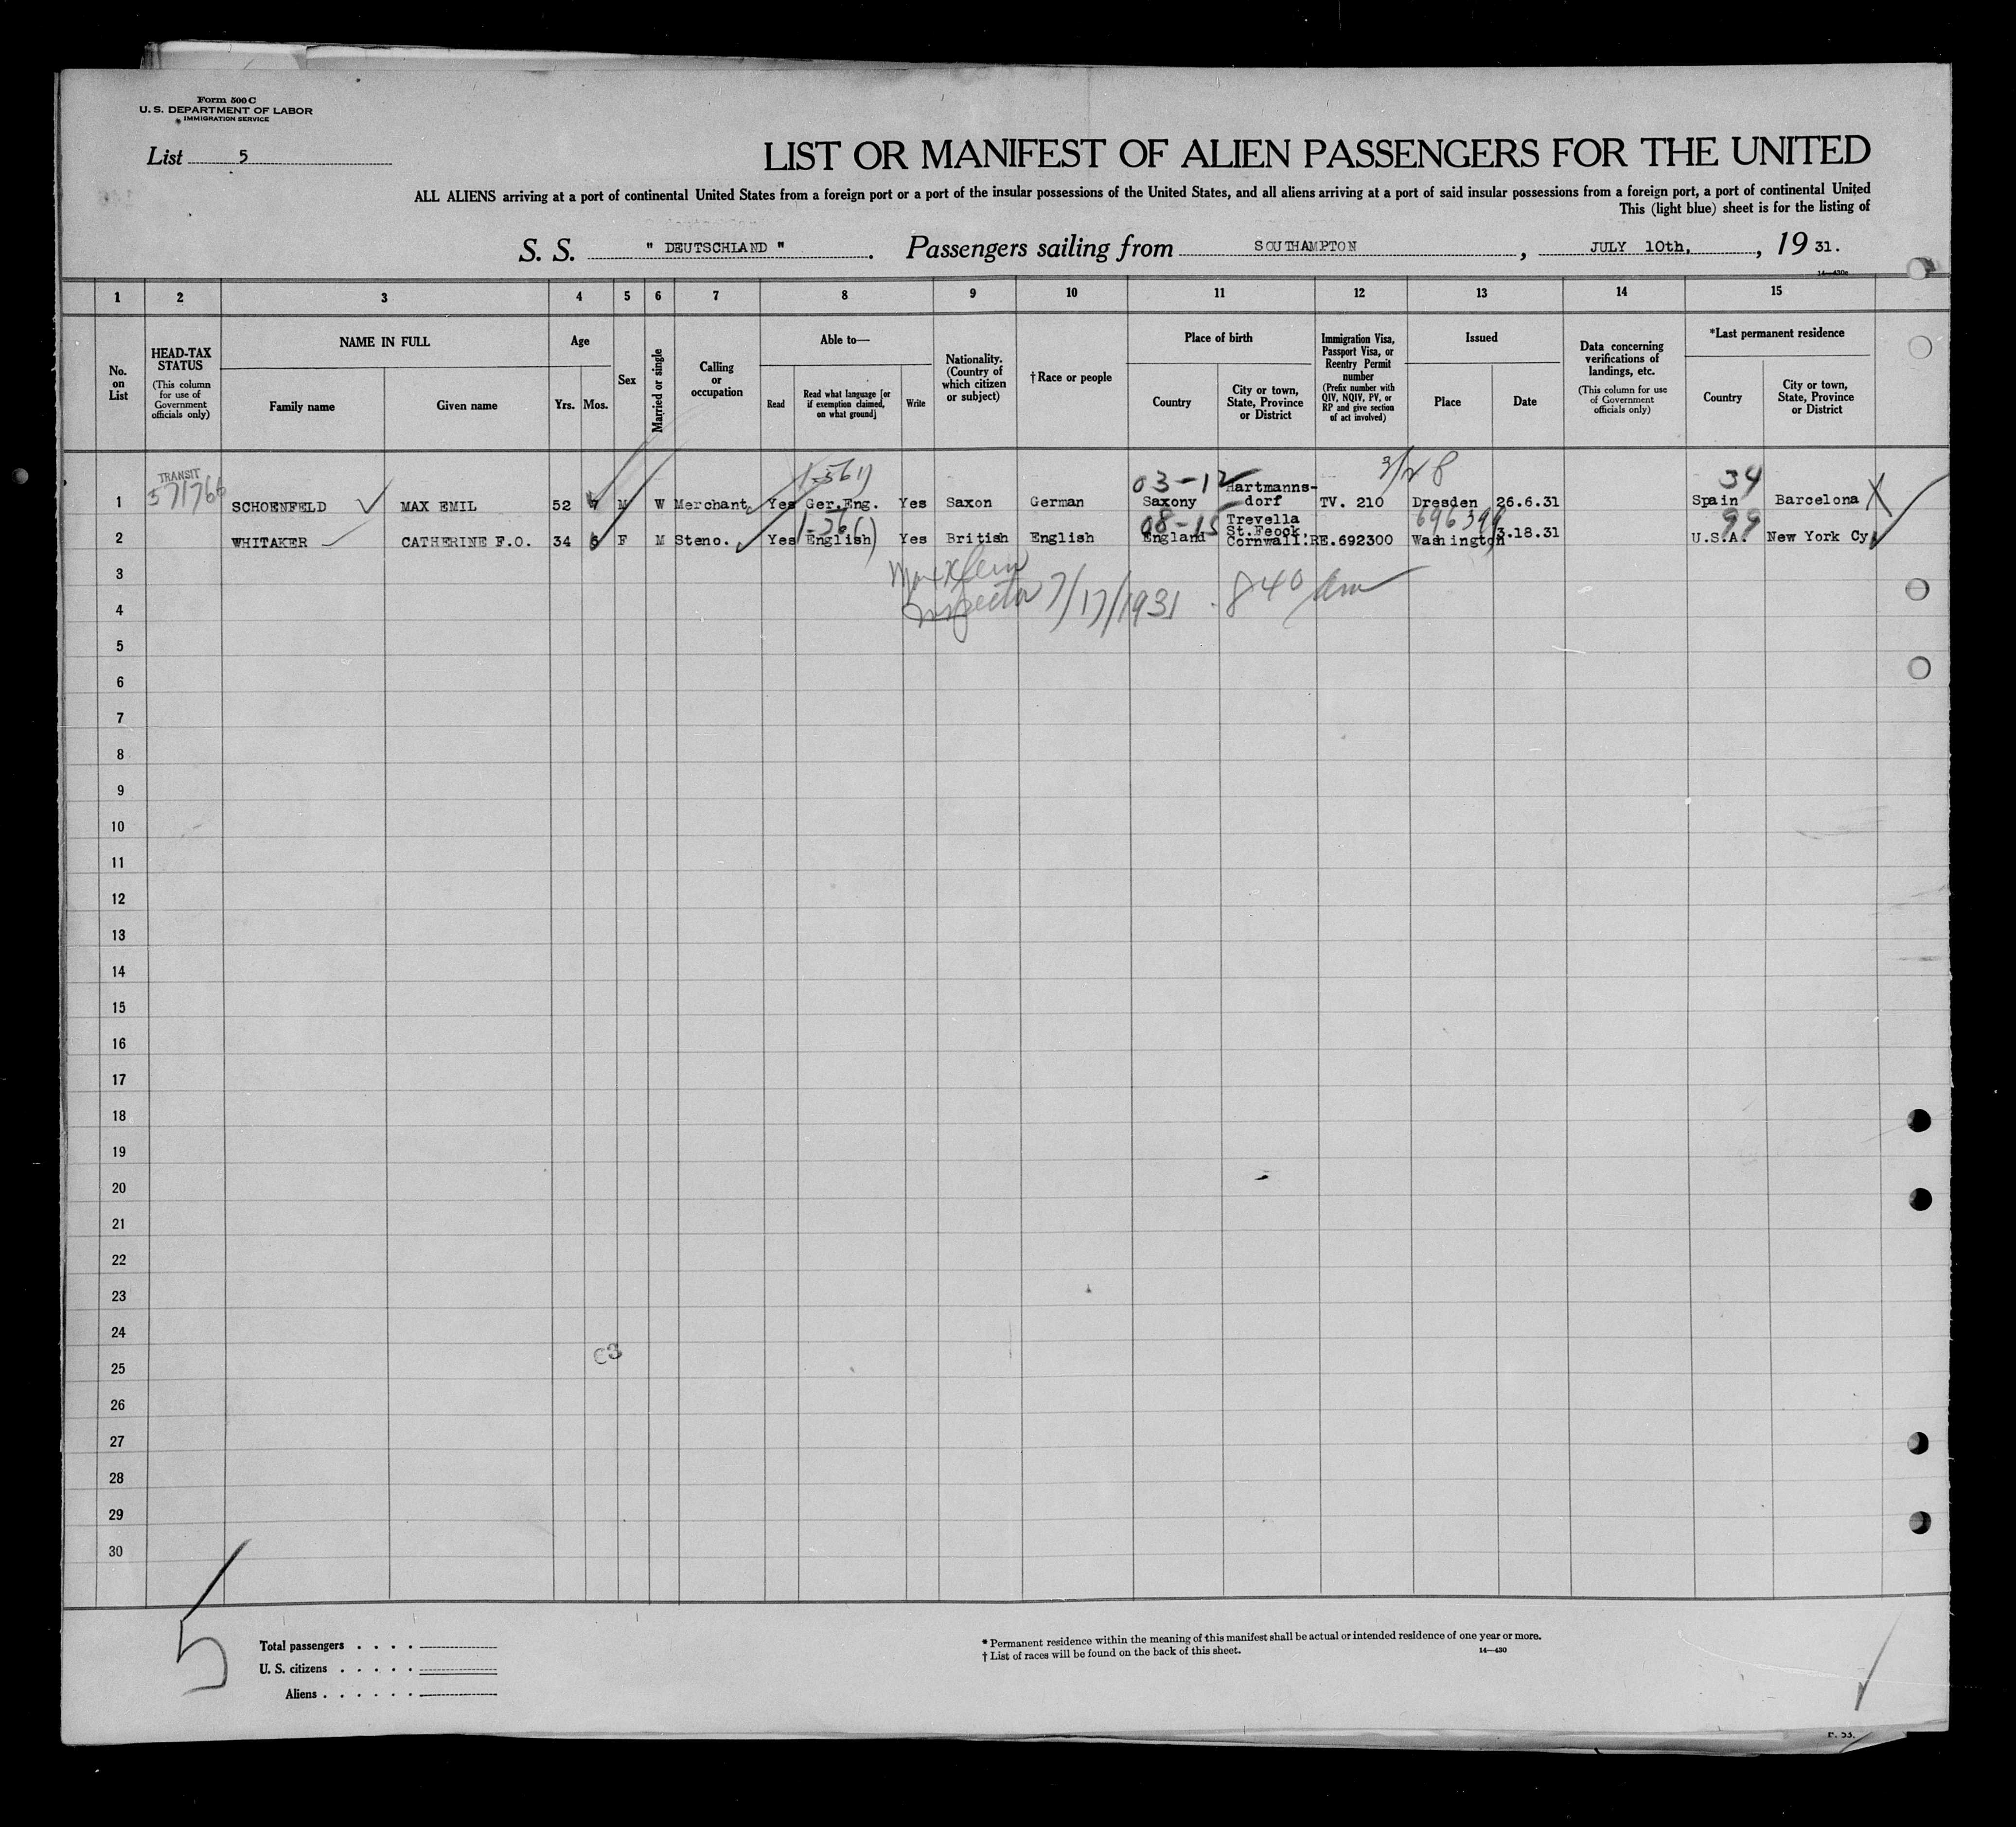 Form 500 C
U. S. DEPARTMENT OF LABOR
IMMIGRATION SERVICE
List 5
LIST OR MANIFEST OF ALIEN PASSENGERS FOR THE UNITED
ALL ALIENS arriving at a port of continental United States from a foreign port or a port of the insular possessions of the United States, and all aliens arriving at a port of said insular possessions from a foreign port, a port of continental United
This (light blue) sheet is for the listing of
S. S. " DEUTSCHLAND ". Passengers sailing from SOUTHAMPTON, JULY 10th., 19 31.
14—430c
1 2 3 4 5 6 7 8 9 10 11 12 13 14 15
No. on List
HEAD-TAX STATUS (This column for use of Government officials only)
NAME IN FULL
Family name
Given name
Age
Yrs. Mos.
Sex
Married or single
Calling or occupation
Able to—
Read
Read what language [or if exemption claimed, on what ground]
Write
Nationality. (Country of which citizen or subject)
† Race or people
Place of birth
Country
City or town, State, Province or District
Immigration Visa, Passport Visa, or Reentry Permit number (Prefix number with QIV, NQIV, PV, or RP and give section of act involved)
Issued
Place
Date
Data concerning verifications of landings, etc. (This column for use of Government officials only)
*Last permanent residence
Country
City or town, State, Province or District
TRANSIT
03-12
34
1 SCHOENFELD MAX EMIL 52 7 M W Merchant Yes Ger.Eng. Yes Saxon German Saxony Hartmanns-dorf TV. 210 Dresden 26.6.31 Spain Barcelona
08-15
99
2 WHITAKER CATHERINE F.O. 34 5 F M Steno. Yes English Yes British English England Trevella St.Feock. Cornwall. RE.692300 Washington 3.18.31 U.S.A. New York Cy
3
Inspector 7/17/1931 840 am
4
5
6
7
8
9
10
11
12
13
14
15
16
17
18
19
20
21
22
23
24
C3
25
26
27
28
29
30
5
Total passengers . . . .
U. S. citizens . . . . .
Aliens . . . . . .
* Permanent residence within the meaning of this manifest shall be actual or intended residence of one year or more.
† List of races will be found on the back of this sheet.
14—430